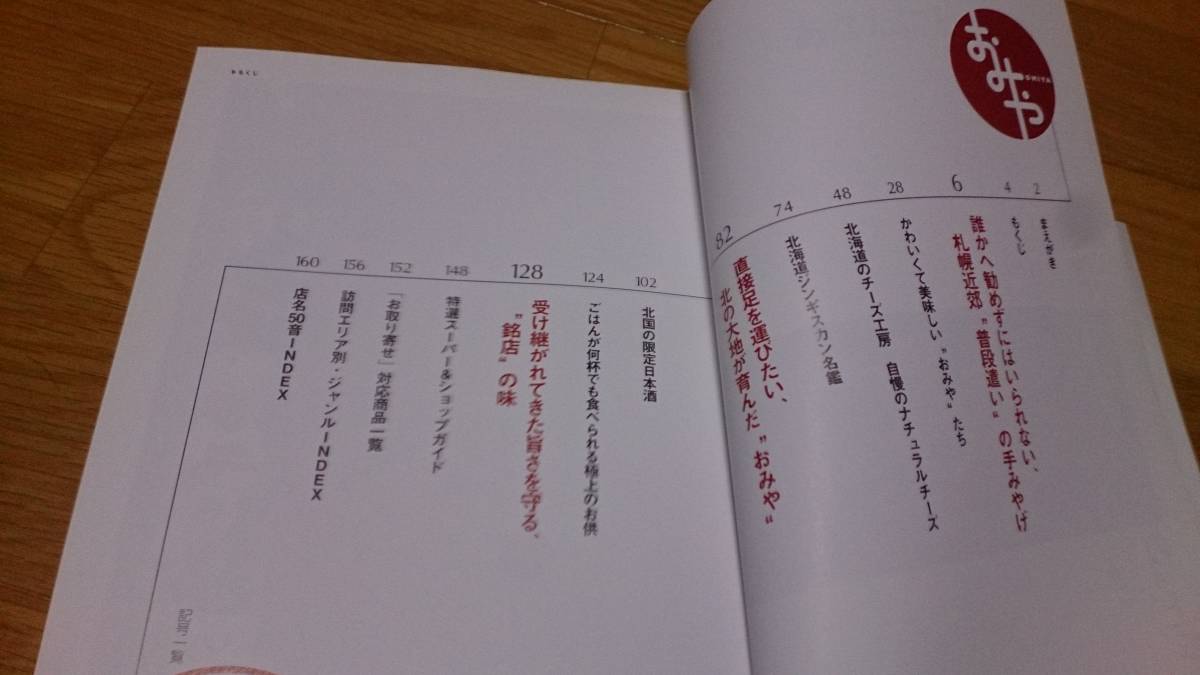 おみや
OMIYA
2
まえがき
4
もくじ
6
誰かへ勧めずにはいられない、
札幌近郊“普段遣い“の手みやげ
28
かわいくて美味しい“おみや“たち
48
北海道のチーズ工房　自慢のナチュラルチーズ
74
北海道ジンギスカン名鑑
82
直接足を運びたい、
北の大地が育んだ“おみや“
もくじ
102
北国の限定日本酒
124
ごはんが何杯でも食べられる極上のお供
128
受け継がれてきた旨さを守る、
“銘店“の味
148
特選スーパー&ショップガイド
152
「お取り寄せ」対応商品一覧
156
訪問エリア別・ジャンルINDEX
160
店名50音INDEX
記号一覧